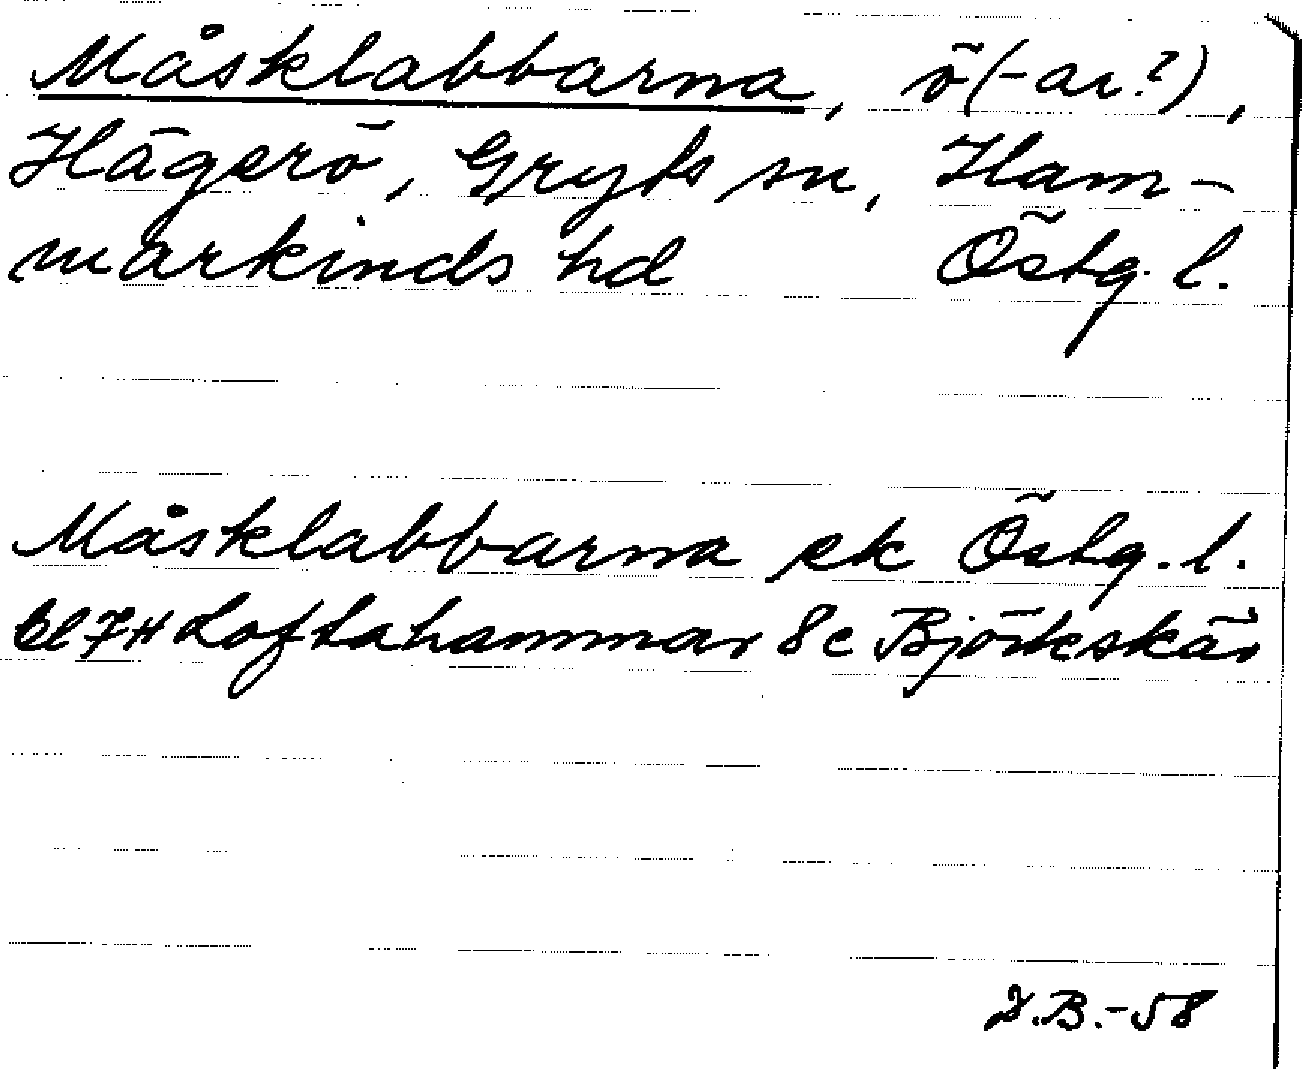 Måsklabbarna, ö(-ar?),
Hägerö, Gryts sn, Ham-
markinds hd Östg. l.
Måsklabbarna ek Östg. l.
bl 7H Loftahammar 8c Björkeskär
J.B.-58